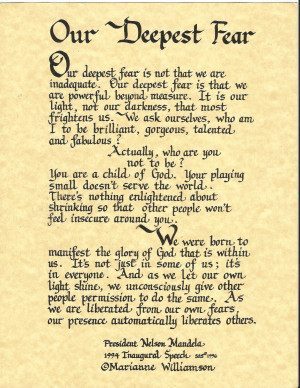 Our Deepest Fear
Our deepest fear is not that we are
inadequate. Our deepest fear is that we
are powerful beyond measure. It is our
light, not our darkness, that most
frightens us. We ask ourselves, who am
I to be brilliant, gorgeous, talented
and fabulous?
Actually, who are you
not to be?
You are a child of God. Your playing
small doesn't serve the world.
There's nothing enlightened about
shrinking so that other people won't
feel insecure around you.
We were born to
manifest the glory of God that is within
us. It's not just in some of us; it's
in everyone. And as we let our own
light shine, we unconsciously give other
people permission to do the same. As
we are liberated from our own fears,
our presence automatically liberates others.
President Nelson Mandela
1994 Inaugural Speech
©Marianne Williamson